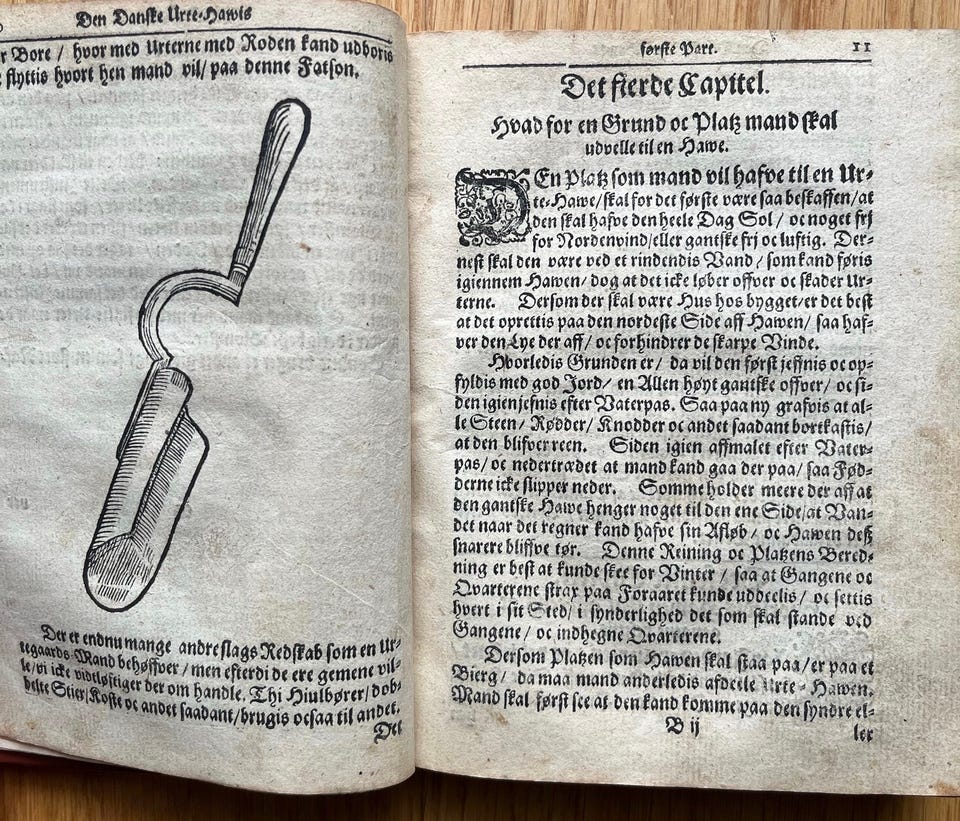 Den Danske Urte-Hawis
Bore / hvor med Urterne med Roden kand udboris
flyttis hvort hen mand vil/ paa denne Fatson.
Der er endnu mange andre slags Redskab som en Ur-
tegaards-Mand behøffver / men efterdi de ere gemene vil-
le/vi icke vidtløftiger der om handle. Thi Hiulbører/dob-
belte Stier/Koste oc andet saadant/brugis ocsaa til andet.
Det
første Part.
11
Det fierde Capitel.
Hvad for en Grund oc Platz mand skal
udvelle til en Hawe.
DEn Platz som mand vil hafve til en Ur-
te-Hawe/skal for det første være saa beskaffen/at
den skal hafve den heele Dag Sol / oc noget frj
for Nordenvind/eller gantske frj oc luftig. Der-
nest skal den være ved et rindendis Vand / som kand føris
igiennem Hawen/ dog at det icke løber offver oc skader Ur-
terne. Dersom der skal være Hus hos bygget/er det best
at det oprettis paa den nordeste Side aff Hawen/ saa haf-
ver den Lye der aff/ oc forhindrer de skarpe Vinde.
Hvorledis Grunden er / da vil den først jeffnis oc op-
fyldis med god Jord/ en Allen høyt gantske offver/ oc si-
den igien jefnis efter Vaterpas. Saa paa ny grafvis at al-
le Steen/ Rødder/ Knodder oc andet saadant bortkastis/
at den blifver reen. Siden igien affmalet efter Vater-
pas/ oc nedertrædet at mand kand gaa der paa/ saa Fød-
derne icke slipper neder. Somme holder meere der aff at
den gantske Hawe henger noget til den ene Side/at Van-
det naar det regner kand hafve sin Afløb/ oc Hawen deß
snarere bliffve tør. Denne Reining oc Platzens Bered-
ning er best at kunde skee for Vinter / saa at Gangene oc
Qvarterene strax paa Foraaret kunde uddeelis/ oc settis
hvert i sit Sted/ i synderlighed det som skal stande ved
Gangene/ oc indhegne Qvarterene.
Dersom Platzen som Hawen skal staa paa/er paa et
Bierg / da maa mand anderledis afdeele Urte-Hawen.
Mand skal først see at den kand komme paa den syndre el-
B ij
ler